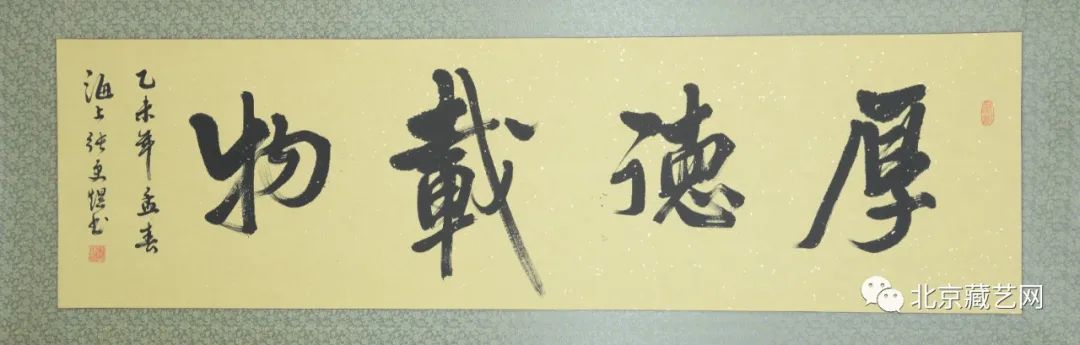 厚德載物
乙未年孟春
海上張更堪书
北京藏艺网